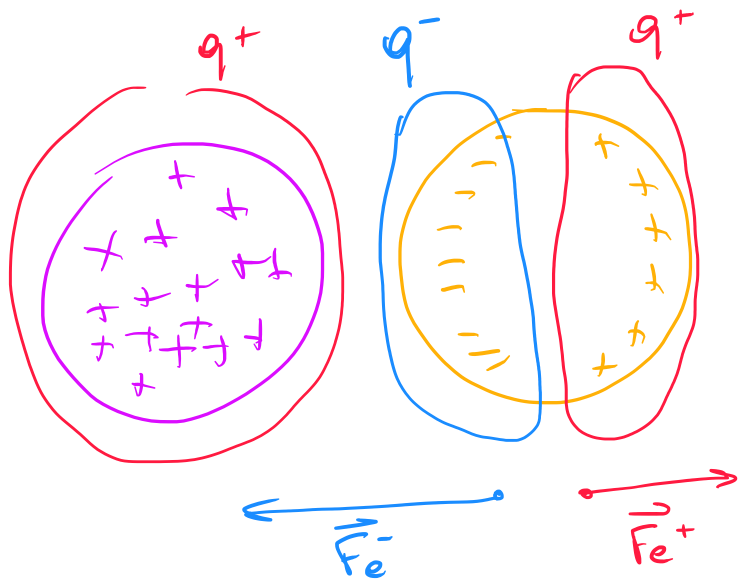 q⁺ q⁻ q⁺
+ + + + + + + + + + + + + + + +
- - - - - - - - -
+ + + + + +
Fe⁻ Fe⁺